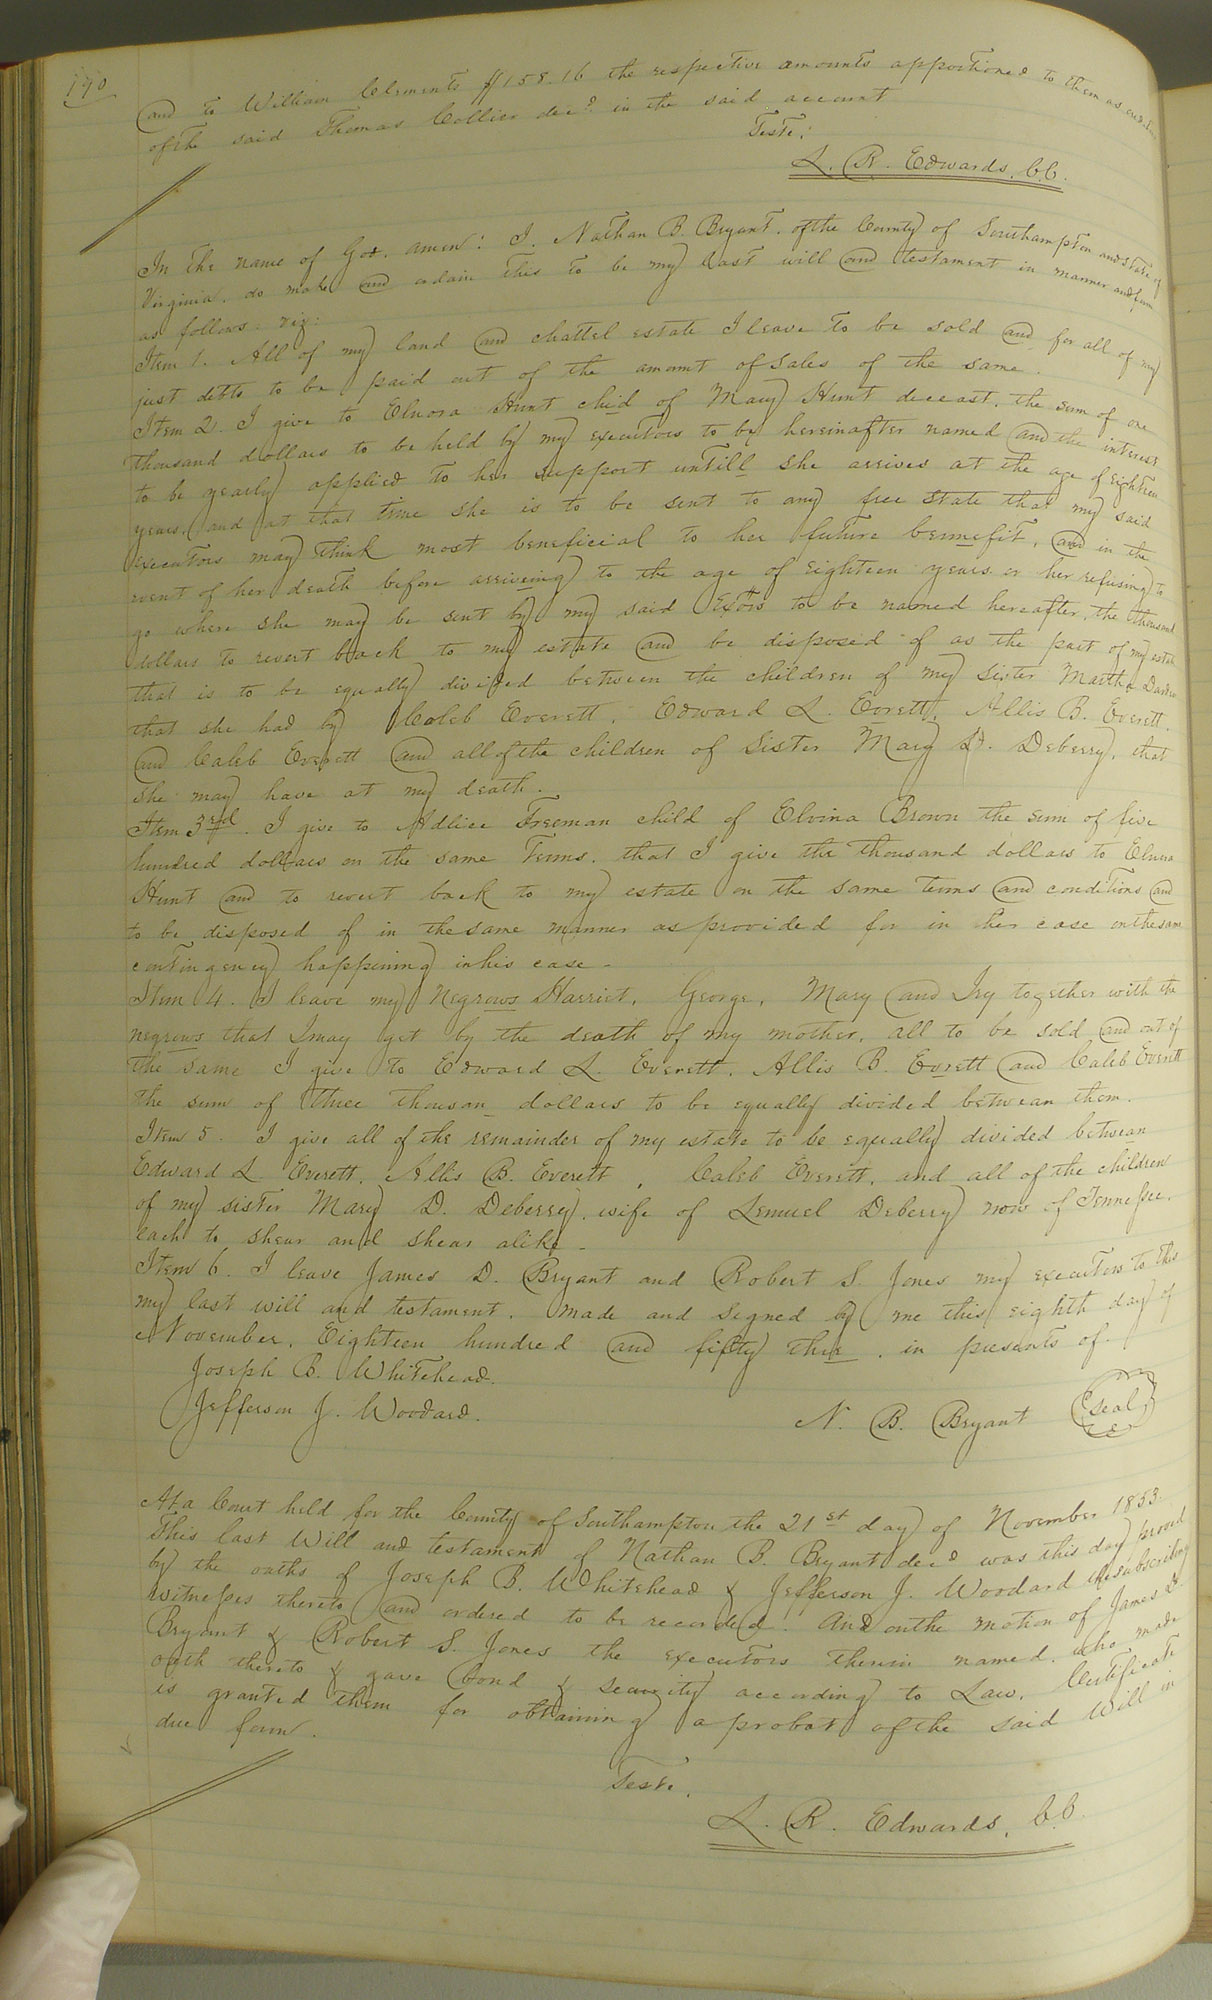 190
and to William Clements $158.16 the respective amounts apportioned to them as
of the said Thomas Collier decd. in the said account
Teste:
L. R. Edwards, C.C.
In the name of God, amen: I. Nathan B. Bryant. of the County of Southampton and State of
Virginia. do make and ordain this to be my last will and testament in manner and form
as follows: viz:
Item 1. All of my land and chattel estate I leave to be sold and for all of my
just debts to be paid out of the amount of sales of the same.
Item 2. I give to Elnora Hunt child of Mary Hunt deceast. the sum of one
thousand dollars to be held by my executors to be hereinafter named and the interest
to be yearly applied to her support untill she arrives at the age of Eighteen
years, and at that time she is to be sent to any free State that my said
executors may think most beneficial to her future bennefit, and in the
event of her death before arriveing to the age of eighteen years or her refusing to
go where she may be sent by my said Exotrs to be named hereafter, the thousand
dollars to revert back to my estate and be disposed of as the part of my estate
that is to be equally divided between the children of my sister Martha Darden
that she had by Caleb Everett, Edward L. Evrett, Allis B. Everett.
and Caleb Everett and all of the children of Sister Mary D. Deberry, that
she may have at my death.
Item 3rd. I give to Adlice Freeman child of Elvina Brown the sum of five
hundred dollars on the same terms. that I give the thousand dollars to Elnora
Hunt and to revert back to my estate on the same terms and conditions and
to be disposed of in the same manner as provided for in her case on the same
contingency happining in his case -
Item 4. I leave my Negrows Harriet, George, Mary and Iry together with the
negrows that I may get by the death of my mother, all to be sold and out of
the same I give to Edward L. Everett, Allis B. Evrett and Caleb Everett
the sum of three thousan dollars to be equally divided between them.
Item 5. I give all of the remainder of my estate to be equally divided between
Edward L. Everett, Allis B. Everett, Caleb Everett, and all of the children
of my sister Mary D. Deberry, wife of Lemuel Deberry now of Tennessee.
each to shear and shear alike -
Item 6. I leave James D. Bryant and Robert S. Jones my executors to this
my last will and testament. Made and signed by me this eighth day of
November, Eighteen hundred and fifty thre, in presents of.
Joseph B. Whitehead.
Jefferson J. Woodard.
N. B. Bryant (Seal)
At a Court held for the County of Southampton the 21st day of November 1853.
This last Will and testament of Nathan B. Bryant decd was this day proved
by the oaths of Joseph B. Whitehead & Jefferson J. Woodard the subscribing
witnesses thereto and ordered to be recorded. And on the motion of James D.
Bryant & Robert S. Jones the executors therein named. who made
oath thereto & gave bond & security according to Law. Certificate
is granted them for obtaining a probat of the said Will in
due form.
Teste.
L. R. Edwards, C.C.